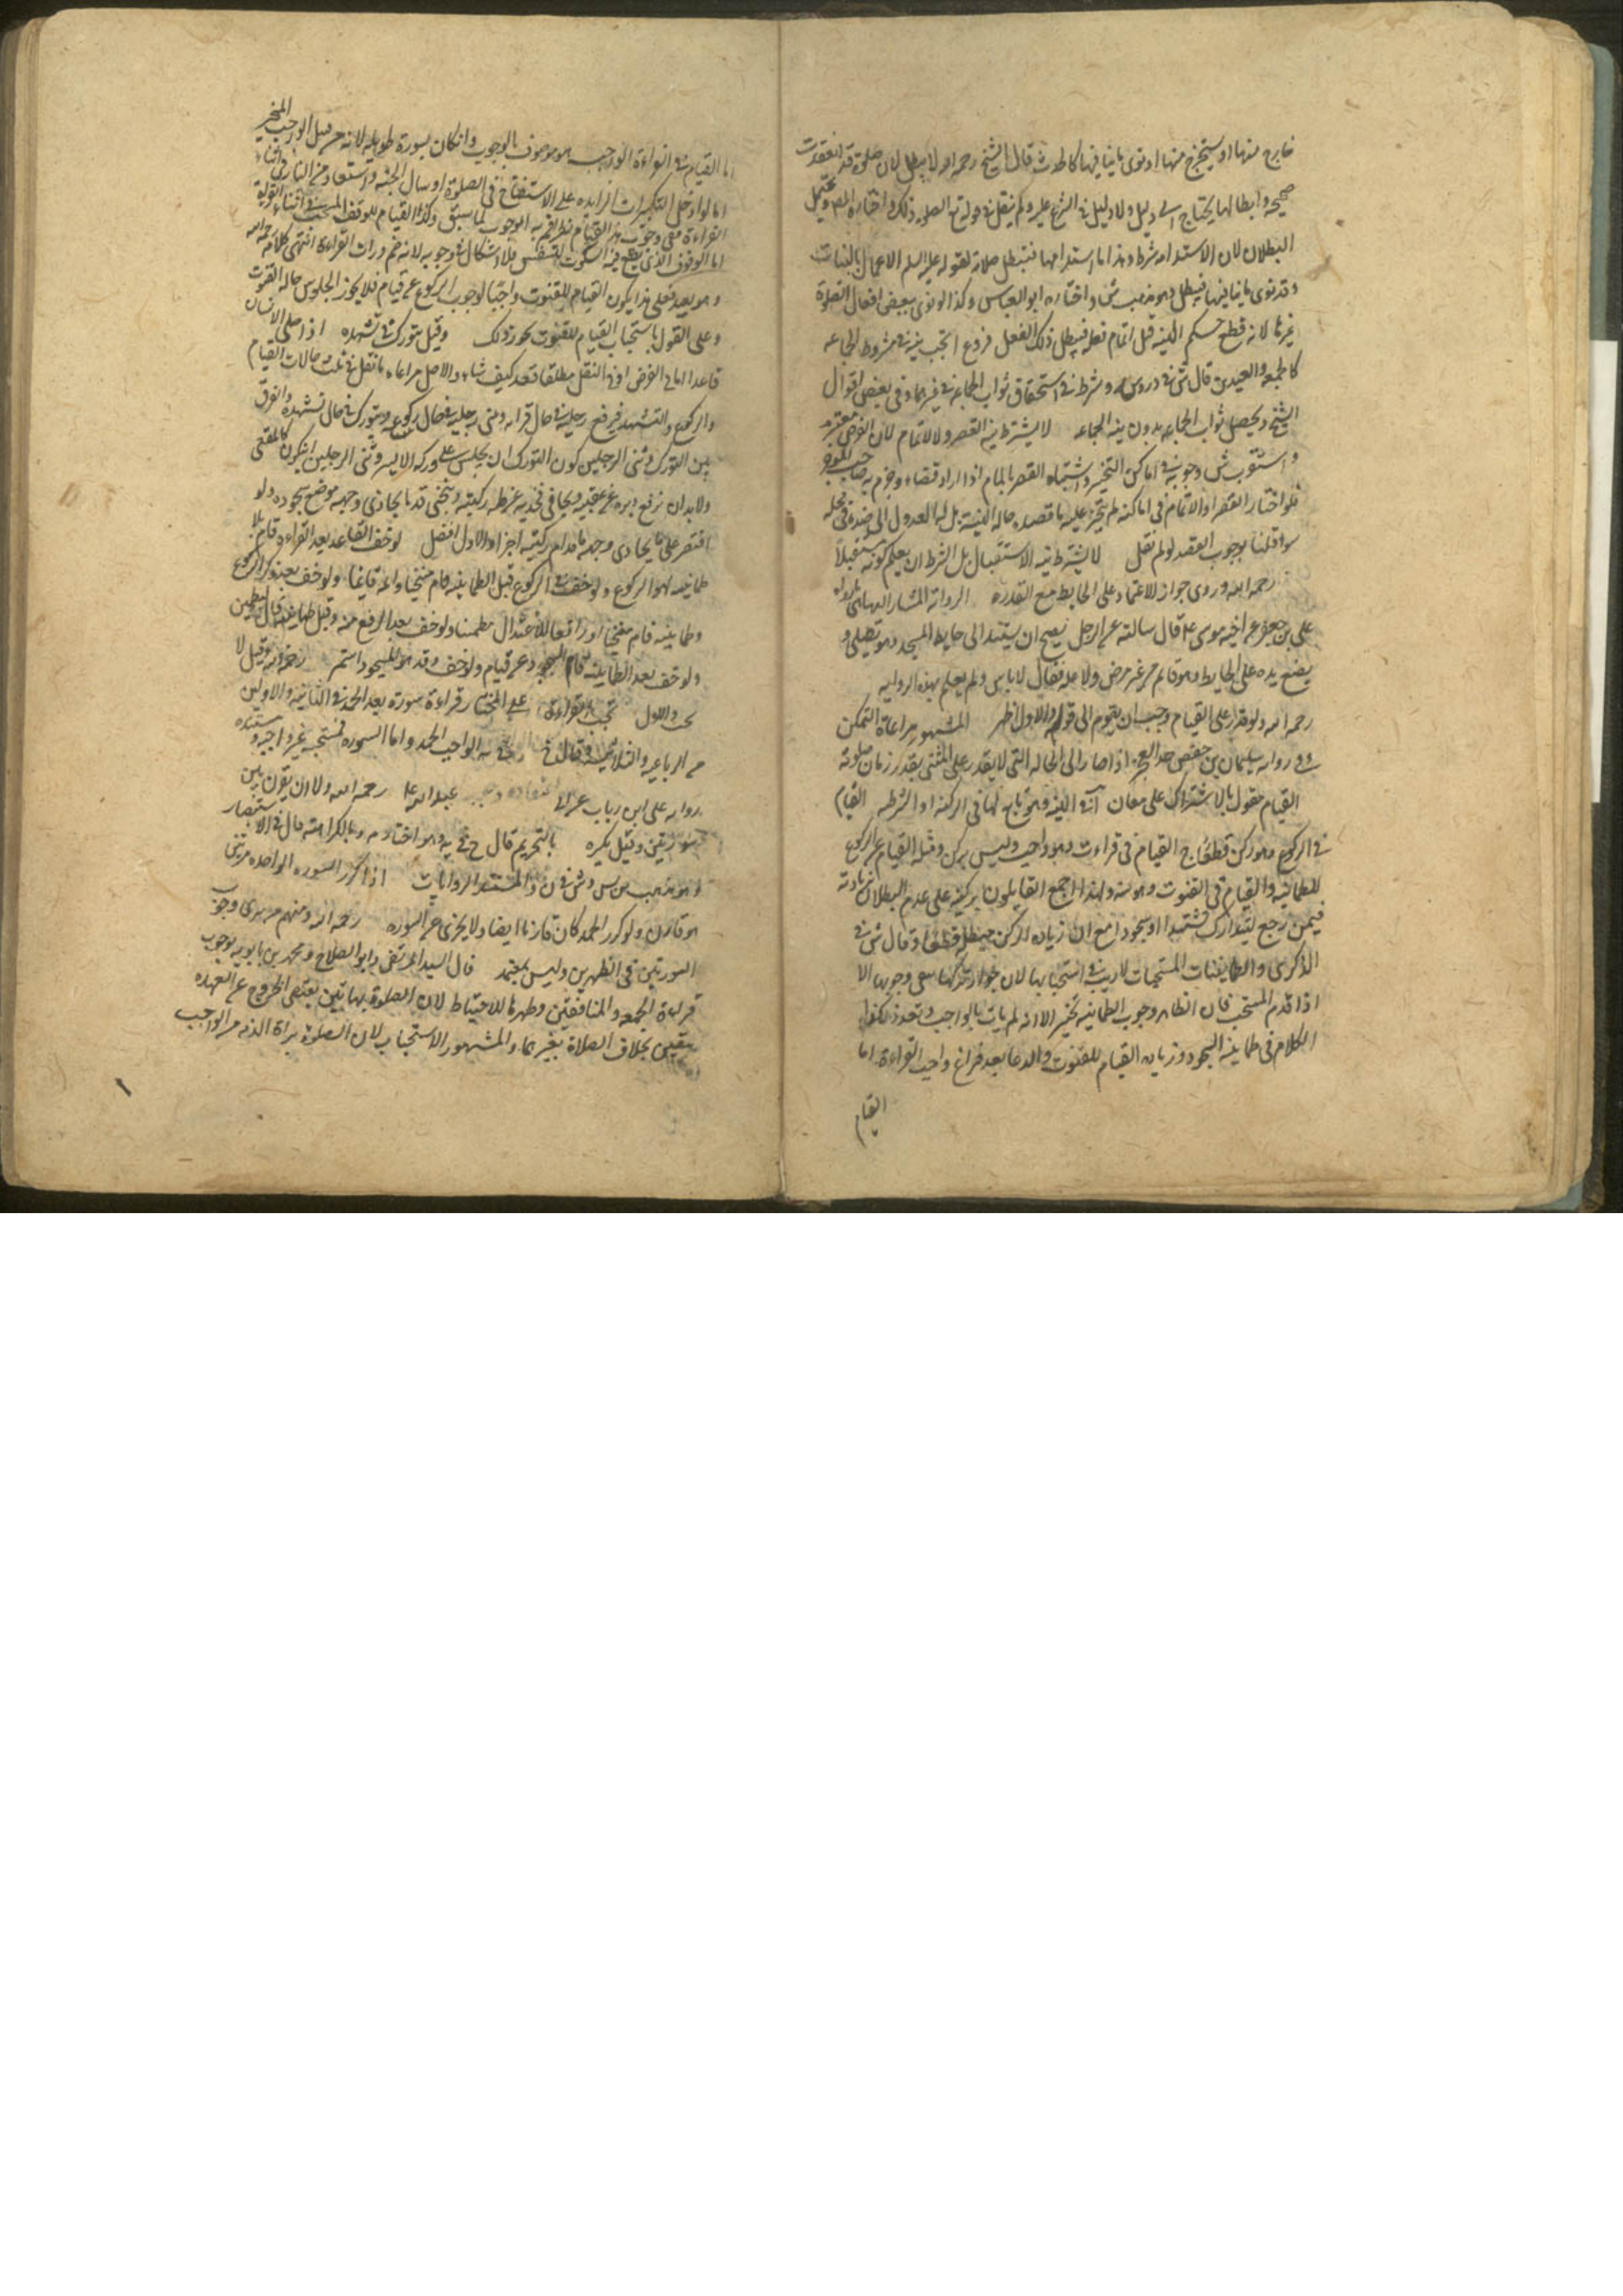 خارج منها او سيخرج منها او نوى ما ينافيها كالحدث قال الشيخ رحمه الله لا يبطل لان صلوة قد انعقدت
صحيحه وابطالها يحتاج الى دليل ولا دليل في الشرع عليه ولم ينقل في قواطع الصلوه ذلك واختاره المص ويحتمل
البطلان لان الاستدامه شرط وهذا ما استدامها فتبطل صلاته لقوله عليه السلم الاعمال بالنيات
وقد نوى ما ينافيها فيبطل وهو مذهب ش واختاره ابو العباس وكذا لو نوى ببعض افعال الصلوة
غيرها لانه قطع حكم النيه قبل اتمام فعله فيبطل ذلك الفعل فروع ا تجب نيه في مشروط الجماعه
كالجمعه والعيدين قال ش في دروسه وشرط في استحقاق ثواب الجماعه في غيرهما وفي بعض اقوال
الشيخ ويحصل ثواب الجماعه بدون نيه الجماعه لا يشترط نية القصر ولا الاتمام لان الفرض معتبر
واستقرب ش وجوبه في اماكن التخيير واشتباه القصر بالتمام اذا اراد قضاء وجزم به صاحب الموجز
فلو اختار القصر او الاتمام في اماكنه لم يتحتم عليه ما قصده حاله النيه بل له العدول الى ضده في محله
سوا قلنا بوجوب القصد او لم نقل لا يشترط نيه الاستقبال بل الشرط ان يعلم كونه مستقبلا
رحمه الله وروى جواز الاعتماد على الحايط مع القدره الروايه المشار اليها ما رواه
على بن جعفر عن اخيه موسى ع قال سالته عن الرجل يصح ان يستند الى حايط المسجد وهو يصلي و
يضع يده على الحايط وهو قايم من غير مرض ولا عله فقال لا باس ولم يعلم بهذه الروايه
رحمه الله ولو قدر على القيام وجب ان يقوم الى قوله والاول اظهر المشهور مراعاة التمكن
وفي روايه سليمان بن حفص حد العجز اذا صار الى الحاله التي لا يقدر على المشي بقدر زمان صلوته
القيام مقول بالاشتراك على معان آ في النيه وهو تابع لها في الركنه او الشرطيه القيام
في الركوع وهو ركن قطعا ج القيام في قراءت وهو واجب وليس بركن ومثله القيام عن الركوع
للطمانينه والقيام في القنوت وهو سنه ولهذا اجمع القايلون بركنيته على عدم البطلان بزيادته
فيمن رجع ليتدارك تشهدا او سجودا مع ان زيادة الركن مبطله قطعا وقال ش في
الذكرى والطمانينات المستحبات لا ريب في استحبابها لان جواز تركها ينفي وجوبها الا
اذا قدم المستحب فان الظاهر وجوب الطمانينه تخير الا انه لم يات بالواجب وكذا
الكلام في طمانينه السجود وزيادة القيام للقنوت والدعا بعد فراغ واجب القراءة اما
القيام
اما القيام في القراءة الواجب هو موصوف بالوجوب وان كان بسورة طويله لانه من قبيل الواجب المخير
اما لو ادخل التكبيرات الزايده على الاستفتاح في الصلوة او سال الجنة واستعاذ من النار في اثناء
القراءة ففي وجوب هذا القيام نظر اقربه الوجوب لما سبق وكذا القيام للوقف المستحب في اثناء القراءة
اما الوقوف الذي يقع فيه السكوت للتنفس فلا اشكال في وجوبه لانه من ضرورات القراءة انتهى كلامه رحمه الله
وهو بعيد فعلى هذا يكون القيام للقنوت واجبا لوجوب الركوع عن قيام فلا يجوز الجلوس حاله القنوت
وعلى القول باستحباب القيام للقنوت يجوز ذلك وقيل يتورك في تشهده اذا صلى الانسان
قاعدا اما في الفرض او في النفل مطلقا قعد كيف شاء والاصل مراعاة ما نقل في ثلث حالات القيام
والركوع والتشهد فيرفع رجليه في حال قراءته ويثني رجليه في حال ركوعه ويتورك في حال تشهده والفرق
بين التورك وثنى الرجلين كون التورك ان يجلس على وركه الايسر وثنى الرجلين ان يكون كالمقعي
ولا بد ان يرفع دبره عن عقبيه ويجافي فخذيه عن طيه ركبتيه وينحني قدر ما يحاذي وجهه موضع سجوده ولو
اقتصر على ما يحاذي وجهه ما قدام ركبتيه اجزا والاول افضل لو خف القاعد بعد القراءة قام بلا
طمانينه لهوا الركوع ولو خف في الركوع قبل الطمانينه قام منحنيا واتمه قايما ولو خف بعد ذكر الركوع
وطمانينته قام منحنيا او رافعا للاعتدال مطمئنا ولو خف بعد الرفع منه وقبل طمانينته قام ليطمئن
ولو خف بعد الطمانينه قام للسجود عن قيام ولو خف وقد هوى للسجود استمر رحمه الله وقيل لا
يجب والاول تجب القراءة على المختار قراءة سورة بعد الحمد في الثانيه والاولين
من الرباعيه والثلاثيه وقال في النهايه الواجب الحمد واما السوره فمستحبه غير واجبه ومستنده
روايه على ابن رياب عن الصادق عبد الله ع رحمه الله ولا ان يقرن بين
سورتين وقيل يكره بالتحريم قال ح في يه وهو اختار م وبالكراهته قال في الاستبصار
وهو مذهب س وش في ن والمستند الروايات اذا كرر السوره الواحده مرتين
هو قارن ولو كرر الحمد كان قارنا ايضا ولا يجزى عن السوره رحمه الله ومنهم من يرى وجوب
السورتين في الظهرين وليس بمعتمد قال السيد المرتضى وابو الصلاح ومحمد بن بابويه بوجوب
قراءة الجمعه والمنافقين وظهرها للاحتياط لان الصلوة بهاتين يقتضي الخروج عن العهده
بيقين بخلاف الصلاة بغيرهما والمشهور الاستحباب لان الصلوة براة الذمه من الواجب